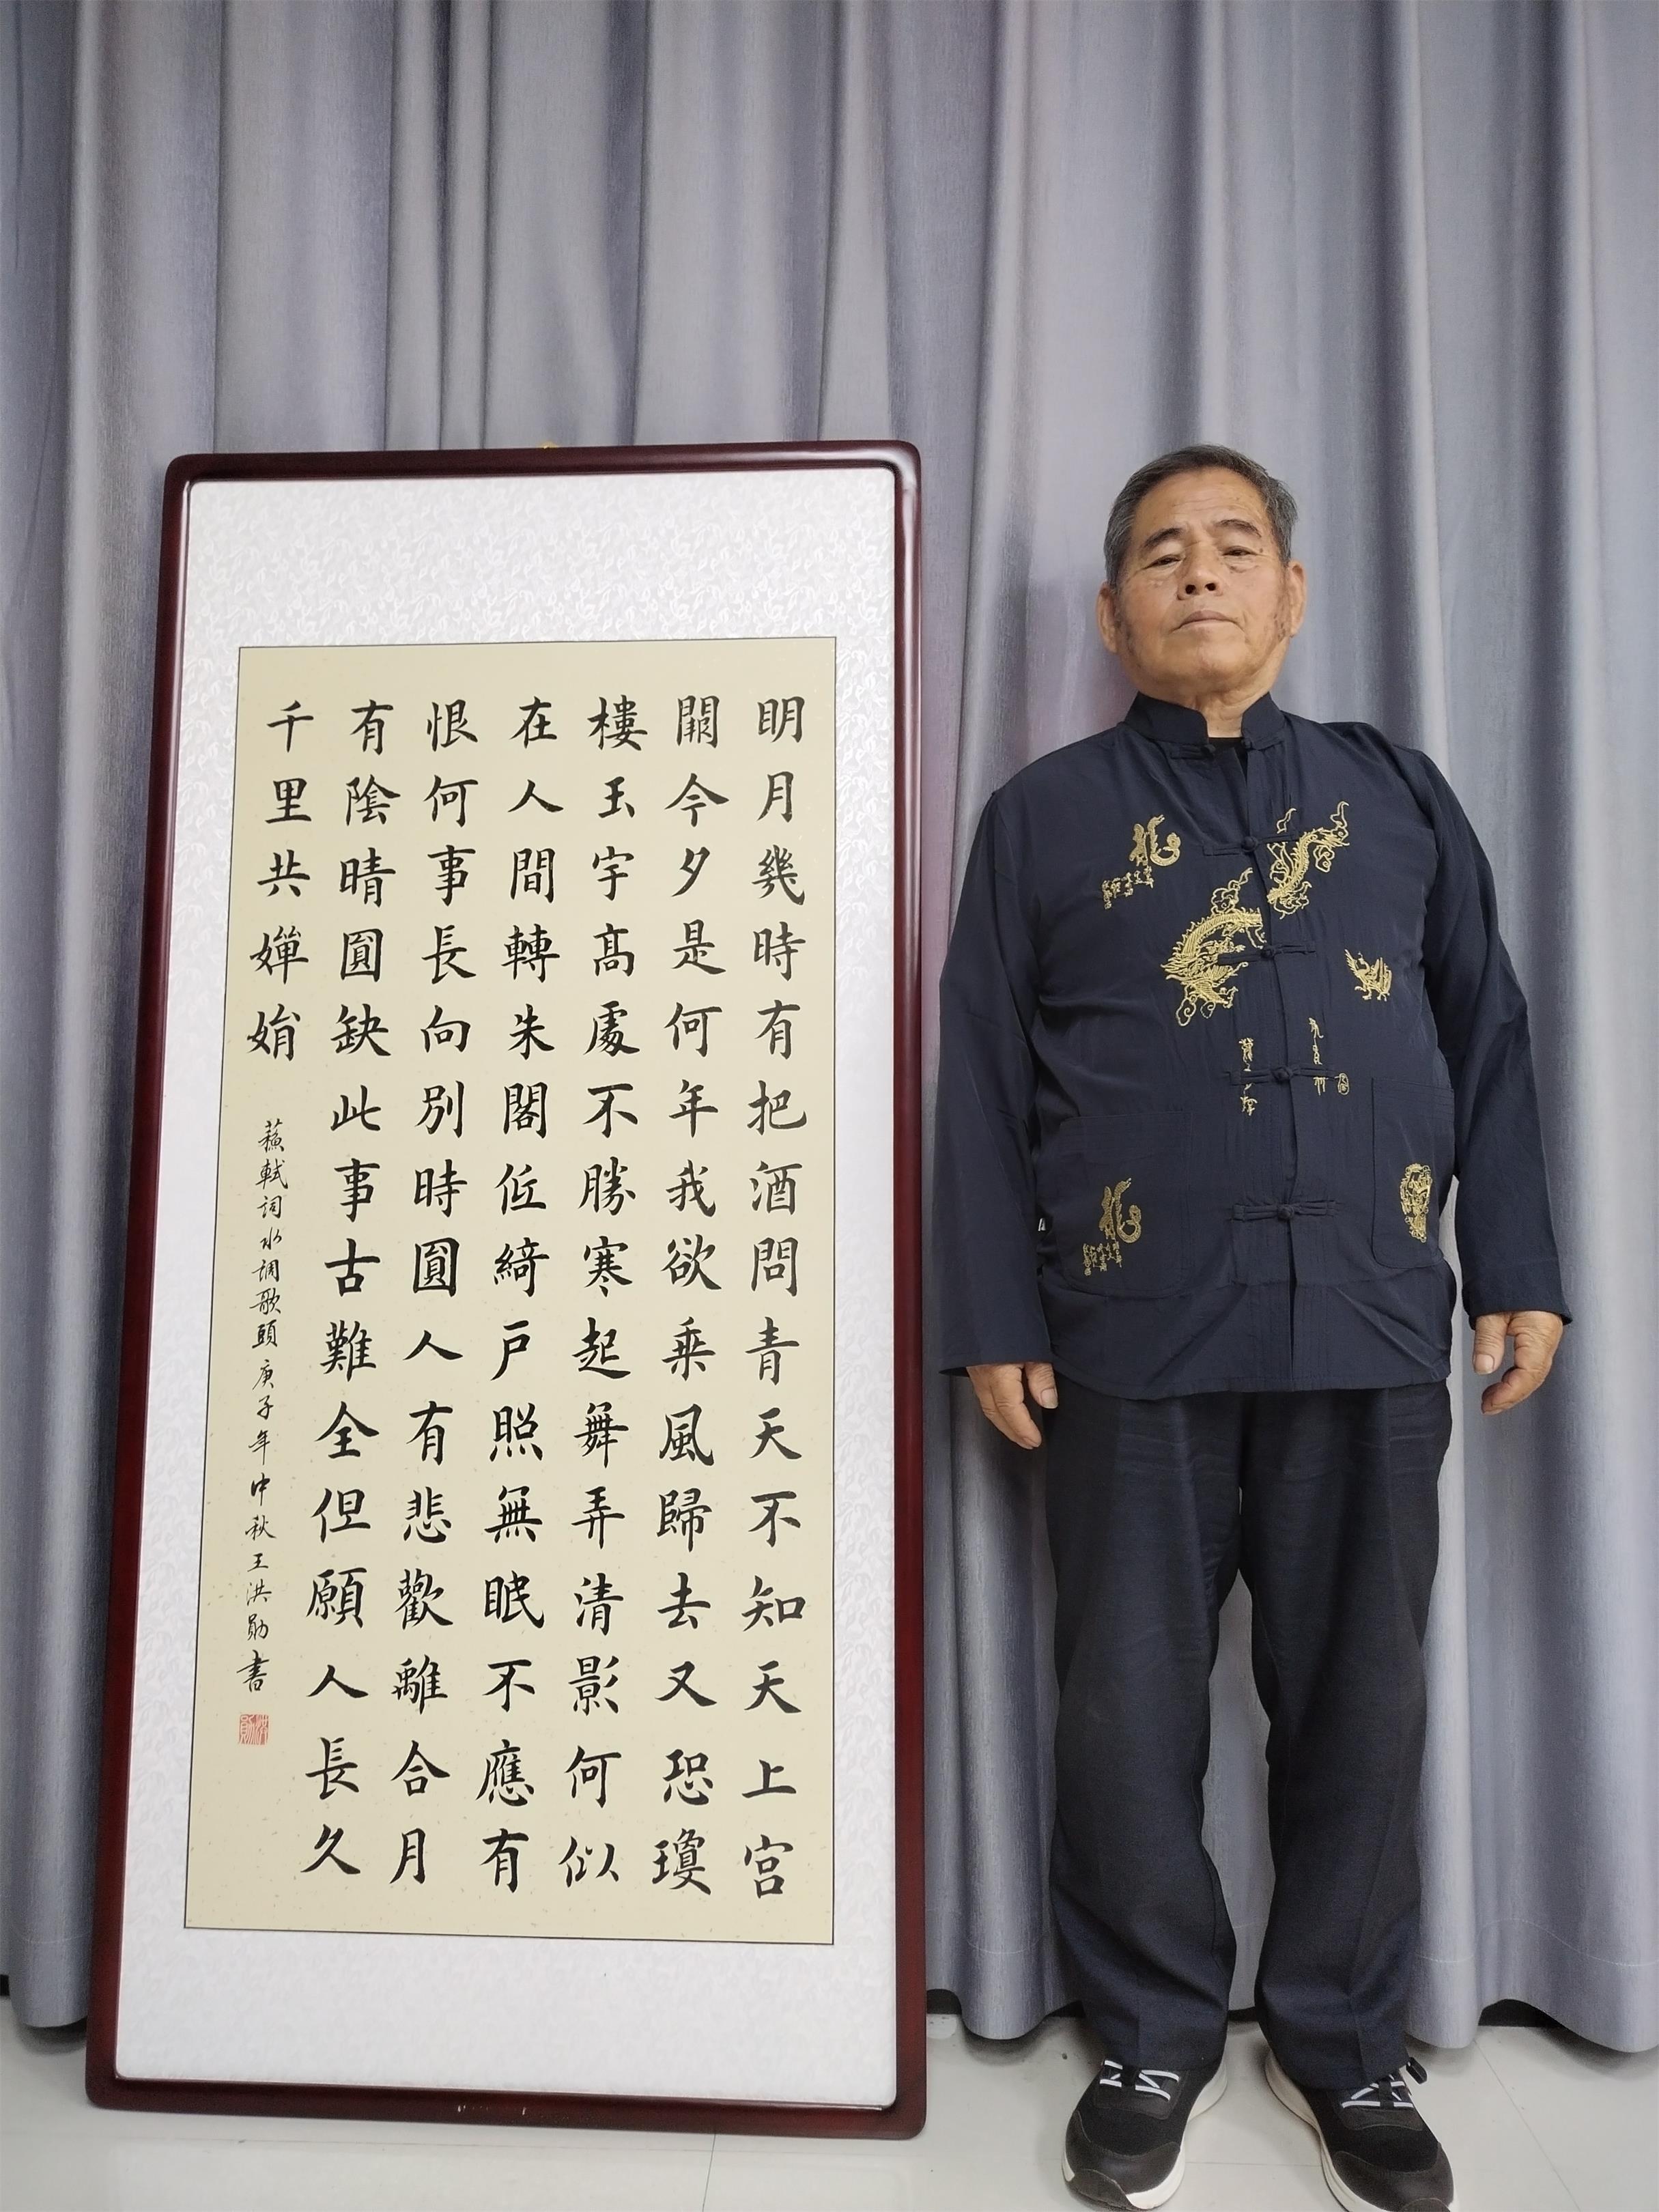 明月幾時有把酒問青天不知天上宮
闕今夕是何年我欲乘風歸去又恐瓊
樓玉宇高處不勝寒起舞弄清影何似
在人間轉朱閣低綺戶照無眠不應有
恨何事長向別時圓人有悲歡離合月
有陰晴圓缺此事古難全但願人長久
千里共嬋娟
蘇軾詞水调歌頭庚子年中秋王洪勋書
龍
龍